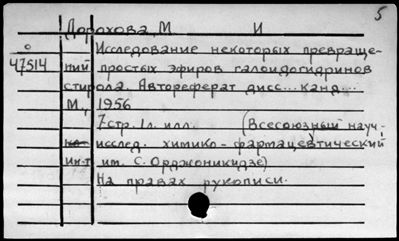 5
Дорохова, М И
Исследование некоторых превраще-
47514 ний простых эфиров галоидогидринов
стирола. Автореферат дисс... канд...
М., 1956
7 стр. 1л. илл. (Всесоюзный науч.
исслед. химико-фармацевтический
ин-т им. С. Орджоникидзе)
На правах рукописи.